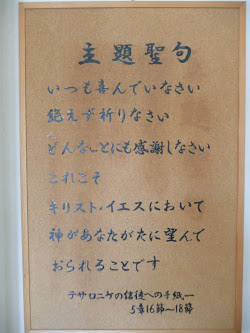 主題聖句
いつも喜んでいなさい
絶えず祈りなさい
どんなことにも感謝しなさい
これこそ
キリスト・イエスにおいて
神があなたがたに望んで
おられることです
テサロニケの信徒への手紙一
5章16節〜18節